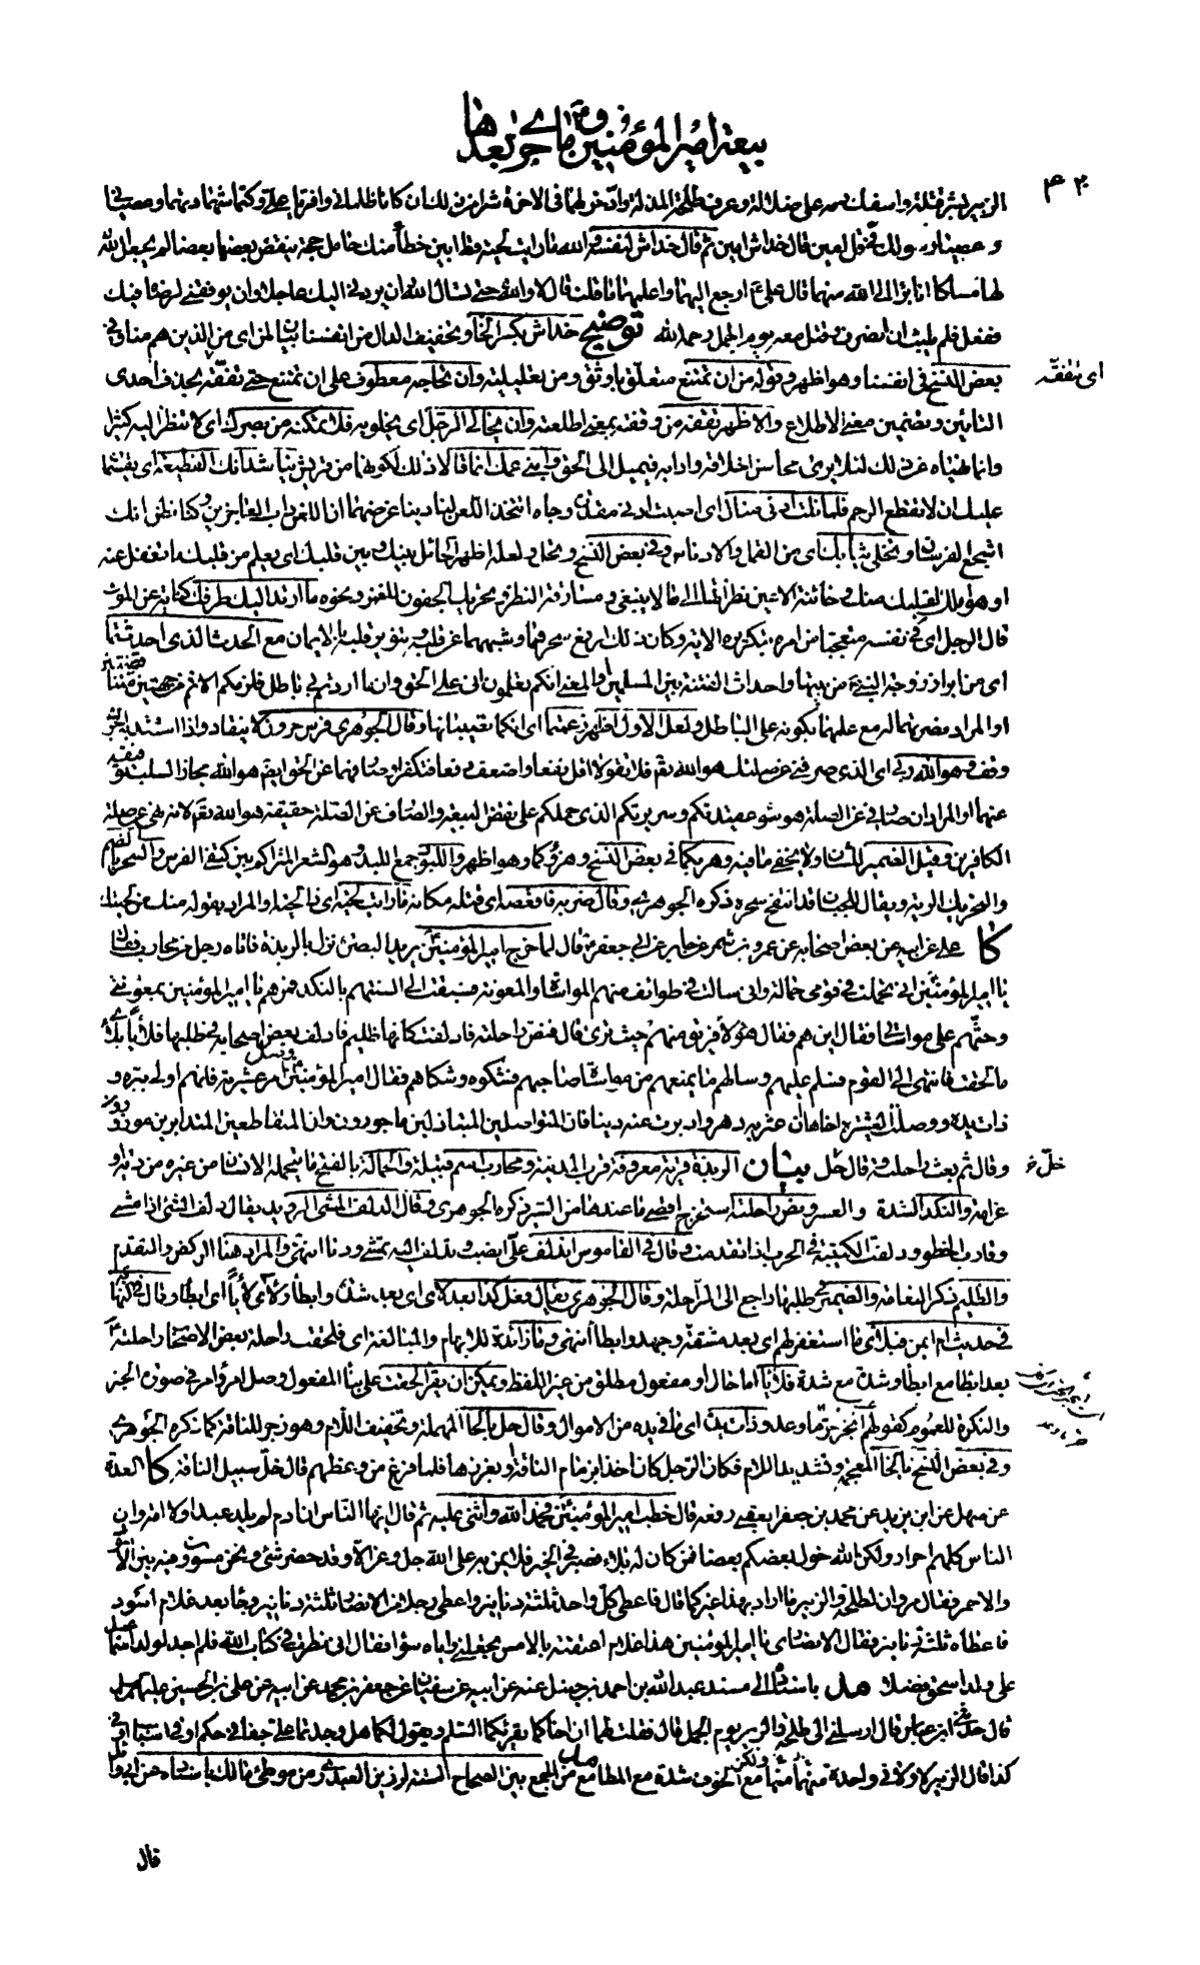 بيعة امير المؤمنين وما جرى بعدها
٤٣
الزبير بشر قتلة واسفك دمه على ضلالة وعرف طلحة المذلة وادخر لهما فى الاخرة شرا من ذلك ان كانا ظلمانى وافتريا على وكتما شهادتهما وعصياك
وعصيا رسولك فىّ قل امين قال خداش امين ثم قال خداش لنفسه والله ما رايت لحية قط ابين خطأ منك حامل حجة ينقض بعضها بعضا لم يجعل الله
لها مساكا انا ابرأ الى الله منهما قال على ع ارجع اليهما واعلمهما ما قلت قال لا والله حتى تسال الله ان يردنى اليك عاجلا وان يوفقنى لرضاه فيك
ففعل فلم يلبث ان انصرف وقتل معه يوم الجمل رحمه الله توضيح خداش بكسر الخاء وتخفيف الدال من انفسنا بيان لمن اى من الذين هم منا وفى
بعض النسخ فى انفسنا وهو اظهر وقوله من ان تمتنع متعلق باوثق ومن تعليلية وان تحاجه معطوف على ان تمتنع حتى تفقه بحذف احدى
اى تتفقه
التائين وتضمين معنى الاطلاع والاظهر تقفه من وقفه بمعنى اطلعته وان يخالى الرجل اى يخلو به فلا تمكنه من بصرك اى لا تنظر اليه كثيرا
وانما نهياه عن ذلك لئلا يرى محاسن اخلاقه وادابه فيميل الى الحق وابنى عمك انما قالا ذلك لكونهما من قريش يناشدانك القطيعة اى يقسمان
عليك ان لا تقطع الرحم فلما نلت ادنى منال اى اصبت ادنى مقدرة وجاه اتتخذ اللعن لنا دينا غرضهما ان اللعن داب العاجزين وكنا نظن انك
اشجع الفرسان
او هو يملك لقلبك
قال الرجل اى فى نفسه متعجبا من امره بتكريره الاية وكان ذلك لرفع سحرهما وشبههما عن قلبه وتنوير قلبه بالايمان مع الحدث الذى احدثتما
اى من ابراز زوجة النبى ص من بيتها واحداث الفتنة بين المسلمين والمعنى انكم تعلمون انى على الحق وانما اردتم بى باطل فلزمكم الاثم من جهتين
او المراد مضرتهما له مع علمهما بكونه على الباطل ولعل الاول اظهر
وقف
عنهما او المراد ان صارفى عن الصلة هو سوء عقيدتكم وسريرتكم الذى حملكم على نقض البيعة والصارف عن الصلة حقيقة هو الله تعم لانه نهى عن صلة
الكافرين وقيل الضمير للشان ولا يخفى ما فيه وهربكما فى بعض النسخ وهزؤكما وهو اظهر واللبود جمع اللبد وهو الشعر المتراكم بين كتفى الفرس والسحر بالضم
والتحريك الرية ويقال للجبان قد انتفخ سحره ذكره الجوهرى وقال ضربه فاقعصه اى قتله مكانه ما رايت لحية اى ذا لحية والمراد بقوله منك من لحيتك
كا على عن ابيه عن بعض اصحابه عن عمرو بن شمر عن جابر عن ابى جعفر ع قال لما خرج امير المؤمنين ع يريد البصرة نزل بالربذة فاتاه رجل من محارب فقال
يا امير المؤمنين انى تحملت فى قومى حمالة وانى سالت فى طوائف منهم المواساة والمعونة فسبقت الى السنتهم بالنكد فمرهم يا امير المؤمنين بمعونتى
وحثهم على مواساتى فقال اين هم فقال هؤلاء فريق منهم حيث ترى قال فنص راحلته فادلفت كانها ظليم فادلف بعض اصحابه فى طلبها فلأيا بلأى
ما لحقت فانتهى الى القوم فسلم عليهم وسالهم ما يمنعهم من مواساة صاحبهم فشكوه وشكاهم فقال امير المؤمنين ع وصل امرؤ عشيرته فانهم اولى ببره و
ذات يده ووصلت العشيرة اخاها ان عثر به دهر وادبرت عنه دنيا فان المتواصلين المتباذلين ماجورون وان المتقاطعين المتدابرين موزورون
وقال ثم بعث راحلته وقال حل بيان الربذة قرية معروفة قرب المدينة ومحارب اسم قبيلة والحمالة بالفتح ما يتحمله الانسان من غيره من دية او
خلّ خ
غرامة والنكد الشدة والعسر ونص راحلته استخرج اقصى ما عندها من السير ذكره الجوهرى وقال الدلف المشى الرويد يقال دلف الشئ اذا مشى
وقارب الخطو ودلفت الكتيبة فى الحرب اذا تقدمت وقال فى القاموس اندلف على انصب وتدلف اليه تمشى ودنا انتهى والمراد هنا الركض والتقدم
والظليم ذكر النعامة والضمير فى طلبها راجع الى الراحلة وقال الجوهرى يقال فعل كذا بعد لاى اى بعد شدة وابطاء ولأى لأيا اى ابطأ وقال فى النهاية
فى حديث ام ايمن فبلأى ما استغفر لهم اى بعد مشقة وجهد وابطاء انتهى وما زائدة للابهام والمبالغة اى فلحقت راحلة بعض الاصحاب راحلته ع
بعد ابطاء مع ابطاء وشدة مع شدة فلأيا اما حال او مفعول مطلق من غير اللفظ ويمكن ان يقرأ لحقت على بناء المفعول وصل امرؤ امر فى صورة الخبر
والنكرة للعموم كقولهم انجز حر ما وعد وذات يده اى ما فى يده من الاموال وقال حل بالحاء المهملة وتخفيف اللام وهو زجر للناقة كما ذكره الجوهرى
وفى بعض النسخ بالخاء المعجمة وتشديد اللام فكان الرجل كان اخذ بزمام الناقة او بغرزها فلما فرغ من وعظهم قال خل سبيل الناقة كا العدة
عن سهل عن ابن يزيد عن محمد بن جعفر العقبى رفعه قال خطب امير المؤمنين ع فحمد الله واثنى عليه ثم قال ايها الناس ان ادم لم يلد عبدا ولا امة وان
الناس كلهم احرار ولكن الله خول بعضكم بعضا فمن كان له بلاء فصبر فى الخير فلا يمن به على الله جل وعز الا وقد حضر شئ ونحن مسوون فيه بين الاسود
والاحمر فقال مروان لطلحة والزبير ما اراد بهذا غيركما قال فاعطى كل واحد ثلثة دنانير واعطى رجلا من الانصار ثلثة دنانير وجاء بعد غلام اسود
فاعطاه ثلثة دنانير فقال الانصارى يا امير المؤمنين هذا غلام اعتقته بالامس تجعلنى واياه سواء فقال انى نظرت فى كتاب الله فلم اجد لولد اسماعيل
على ولد اسحق فضلا مد باسناده الى مسند عبد الله بن احمد بن حنبل عنه عن ابيه عن سفيان عن جعفر بن محمد عن ابيه عن على بن الحسين عليهم السلام
قال حدثنى ابن عباس قال ارسلنى على الى طلحة والزبير يوم الجمل قال فقلت لهما ان اخاكما يقرئكما السلم ويقول لكما هل وجدتما على حيفا فى حكم او فى
كذا قال الزبير لا ولا فى واحدة منهما ولكن مع الخوف شدة المطامع مد من الجمع بين الصحاح الستة لرزين العبدرى ومن موطأ مالك باسناده عن
قال